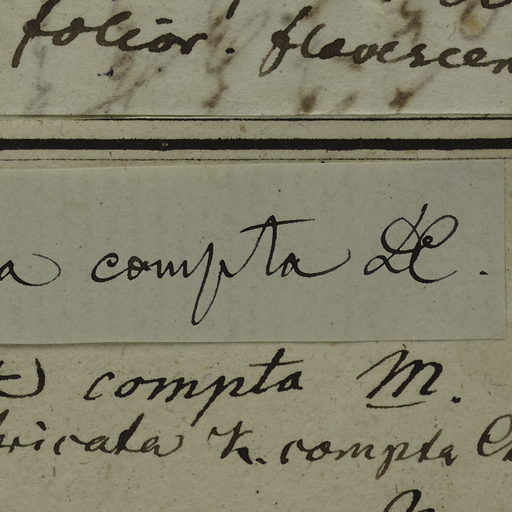 folior. flavescen
a compta DC.
compta M.
ricata K. compta